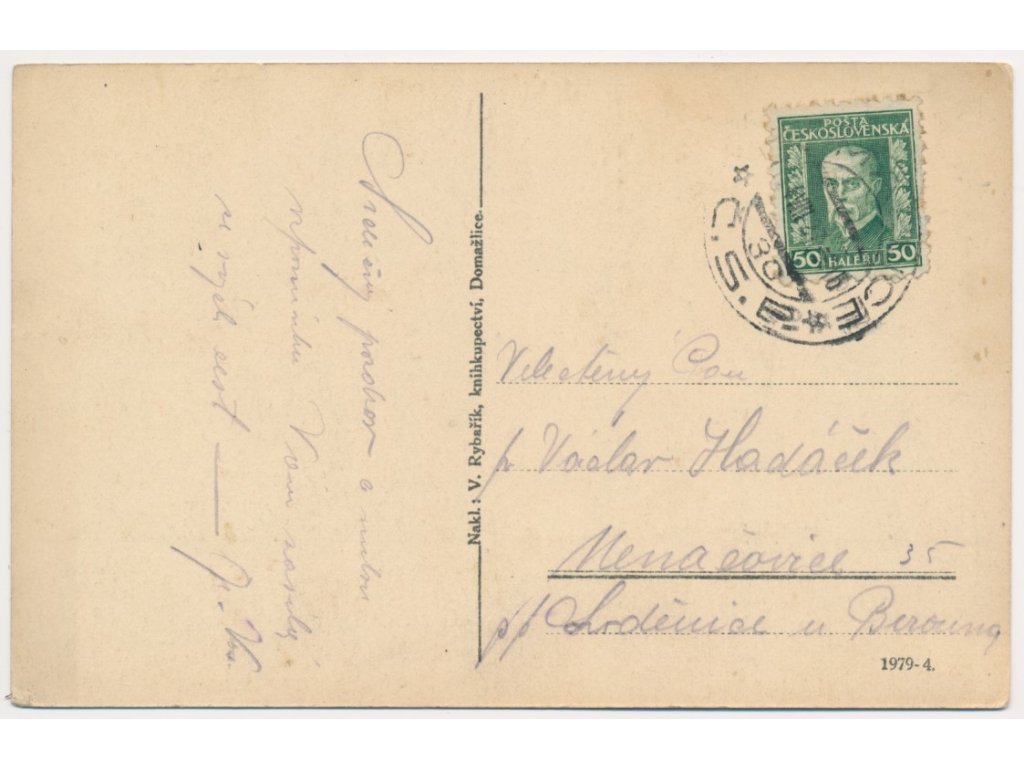 Srdečný pozdrav a milou
vzpomínku Vám zasílá
J. Vá.
Nakl.: V. Rybařík, knihkupectví, Domažlice.
POŠTA
ČESKOSLOVENSKÁ
50 HALÉŘŮ 50
Č.S.
30
CE
Velectěný Pan
p Václav Hadáček
Menačovice 35
p/p Loděnice u Berouna
1979-4.